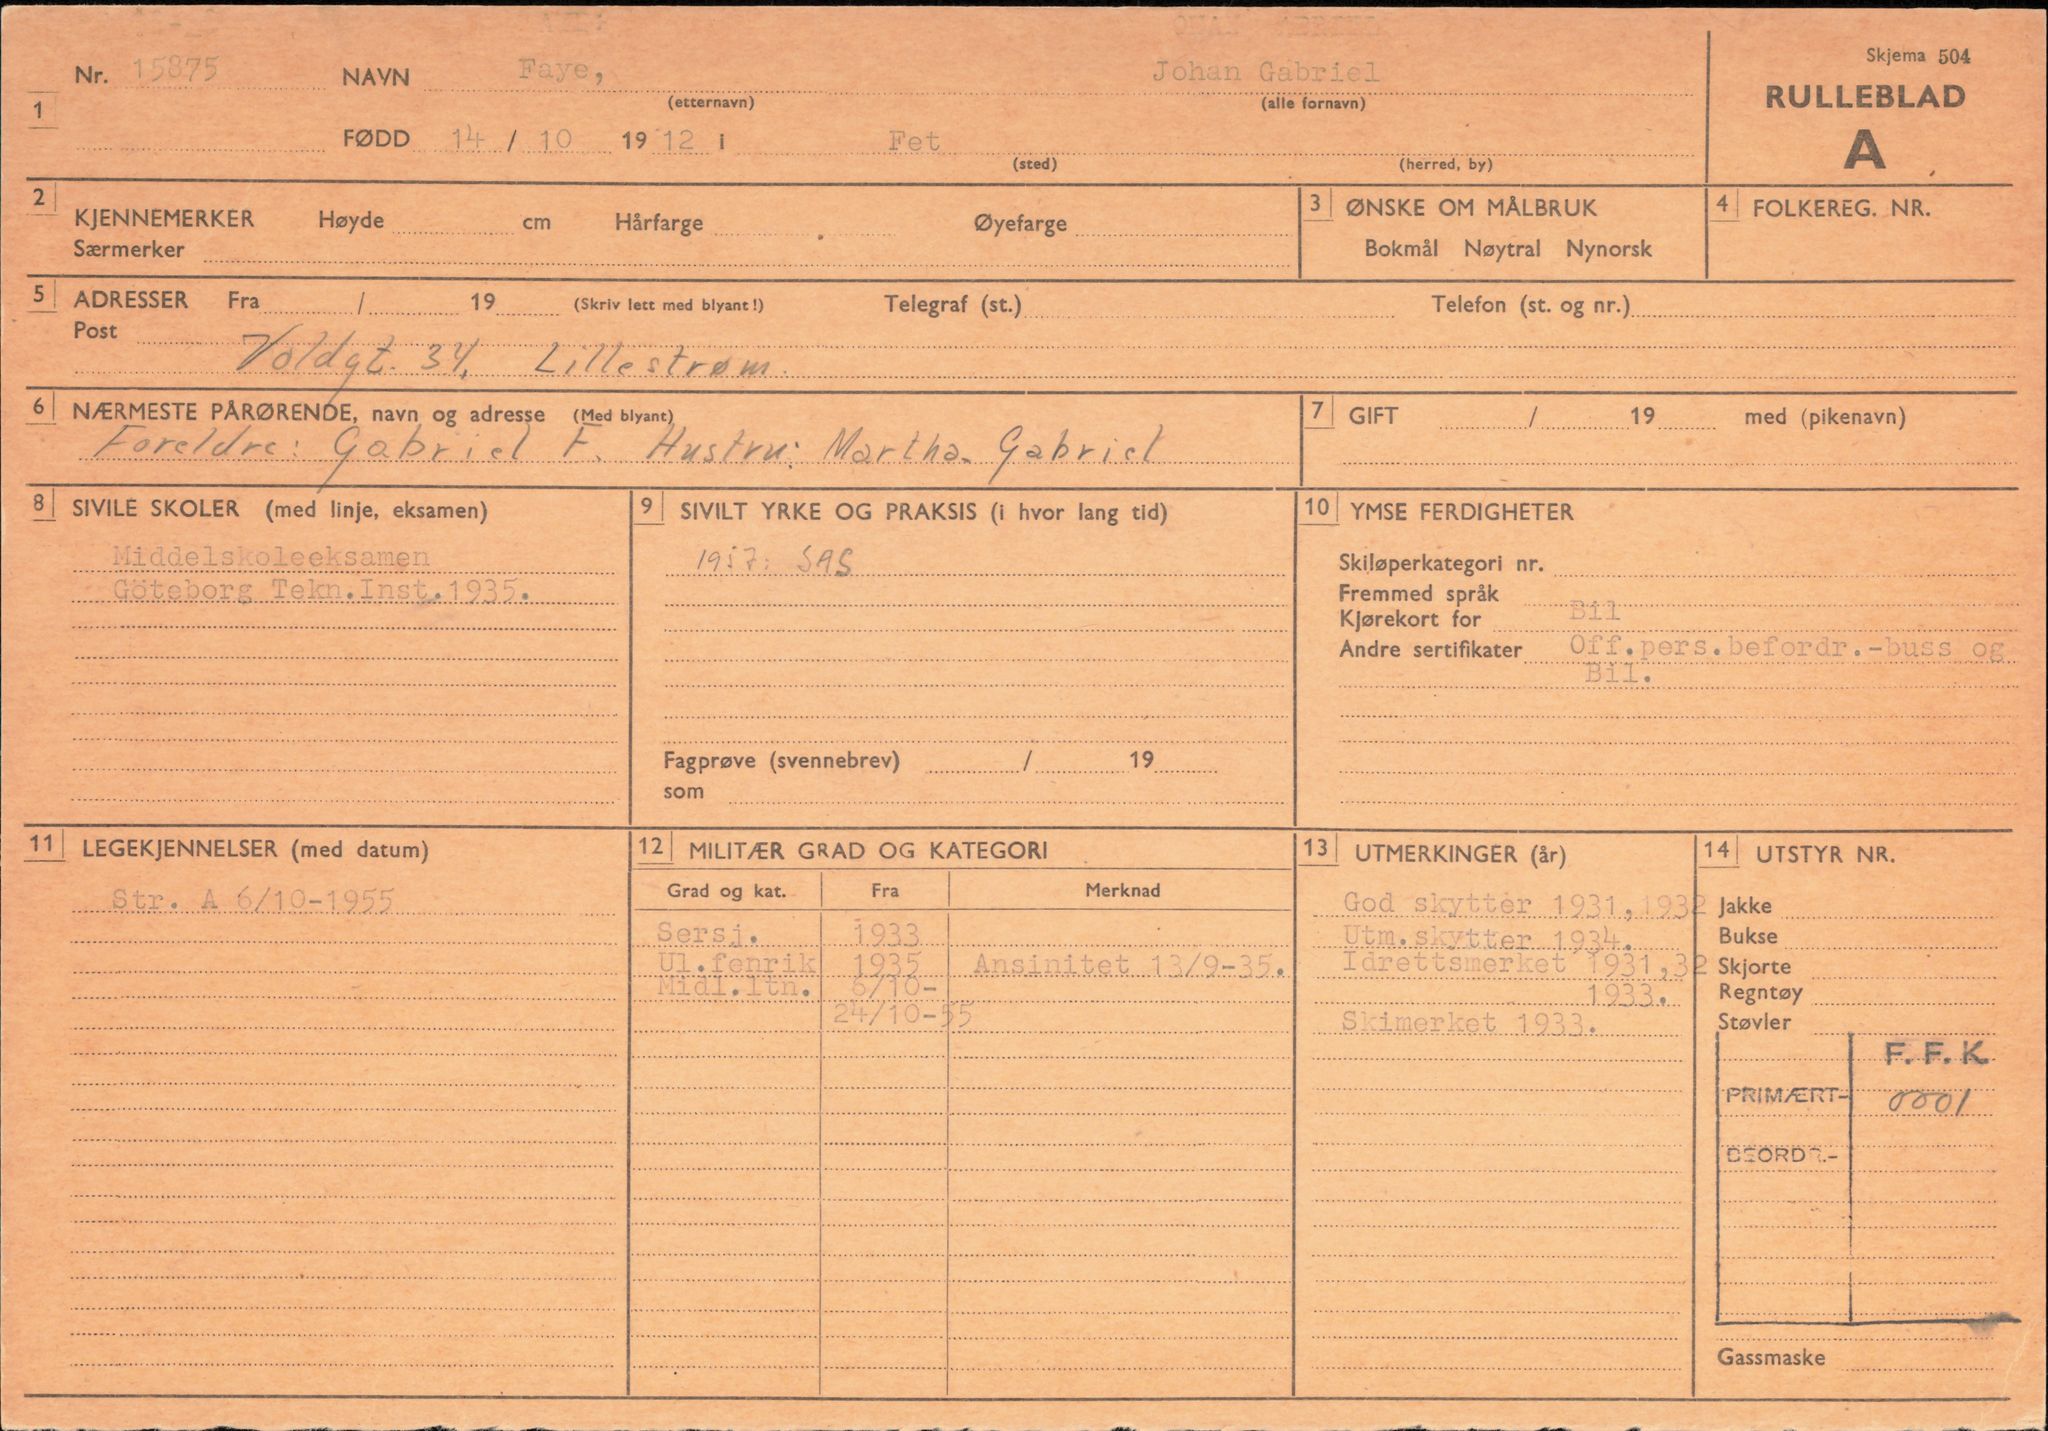 Skjema 504
RULLEBLAD
A
1
Nr. 15875 NAVN Faye, Johan Gabriel
(etternavn) (alle fornavn)
FØDD 14 / 10 19 12 i Fet
(sted) (herred, by)
2
KJENNEMERKER Høyde cm Hårfarge Øyefarge
Særmerker
3 ØNSKE OM MÅLBRUK
Bokmål Nøytral Nynorsk
4 FOLKEREG. NR.
5 ADRESSER Fra / 19 (Skriv lett med blyant!) Telegraf (st.) Telefon (st. og nr.)
Post
Voldgt. 34, Lillestrøm.
6 NÆRMESTE PÅRØRENDE, navn og adresse (Med blyant)
Foreldre: Gabriel F. Hustru: Martha Gabriel
7 GIFT / 19 med (pikenavn)
8 SIVILE SKOLER (med linje, eksamen)
Middelskoleeksamen
Göteborg Tekn.Inst.1935.
9 SIVILT YRKE OG PRAKSIS (i hvor lang tid)
1957: SAS
Fagprøve (svennebrev) / 19
som
10 YMSE FERDIGHETER
Skiløperkategori nr.
Fremmed språk
Kjørekort for Bil
Andre sertifikater Off.pers.befordr.-buss og
Bil.
11 LEGEKJENNELSER (med datum)
Str. A 6/10-1955
12 MILITÆR GRAD OG KATEGORI
Grad og kat. Fra Merknad
Sersj. 1933
Ul.fenrik 1935 Ansinitet 13/9-35.
Midl.ltn. 6/10-
24/10-55
13 UTMERKINGER (år)
God skytter 1931,1932
Utm.skytter 1934.
Idrettsmerket 1931,32
1933.
Skimerket 1933.
14 UTSTYR NR.
Jakke
Bukse
Skjorte
Regntøy
Støvler
F. F. K.
PRIMÆRT- 0001
BEORDR.-
Gassmaske